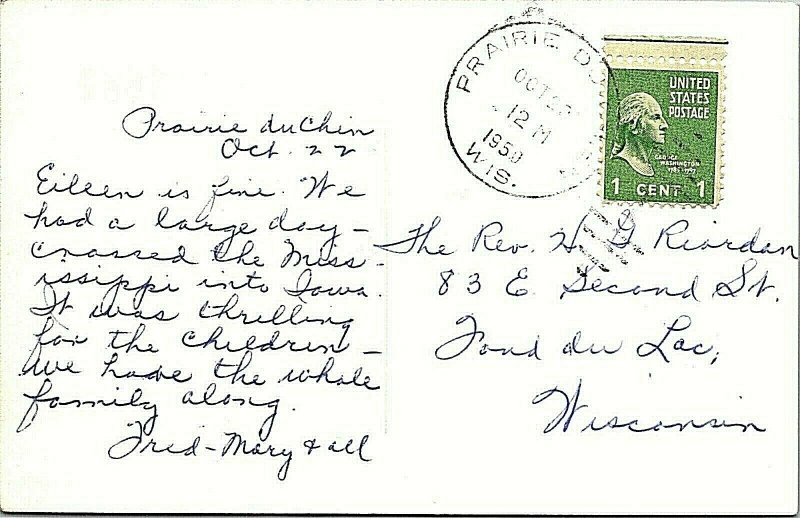 Prairie du Chin
Oct. 22
Eileen is fine. We
had a large day –
crossed the Miss-
issippi into Iowa.
It was thrilling
for the children –
we have the whole
family along.
Fred – Mary & all
PRAIRIE DU
OCT 2
12 M
1950
WIS.
UNITED
STATES
POSTAGE
GEORGE
WASHINGTON
1 CENT 1
The Rev. H. G Riordan
83 E. Second St.
Fond du Lac,
Wisconsin